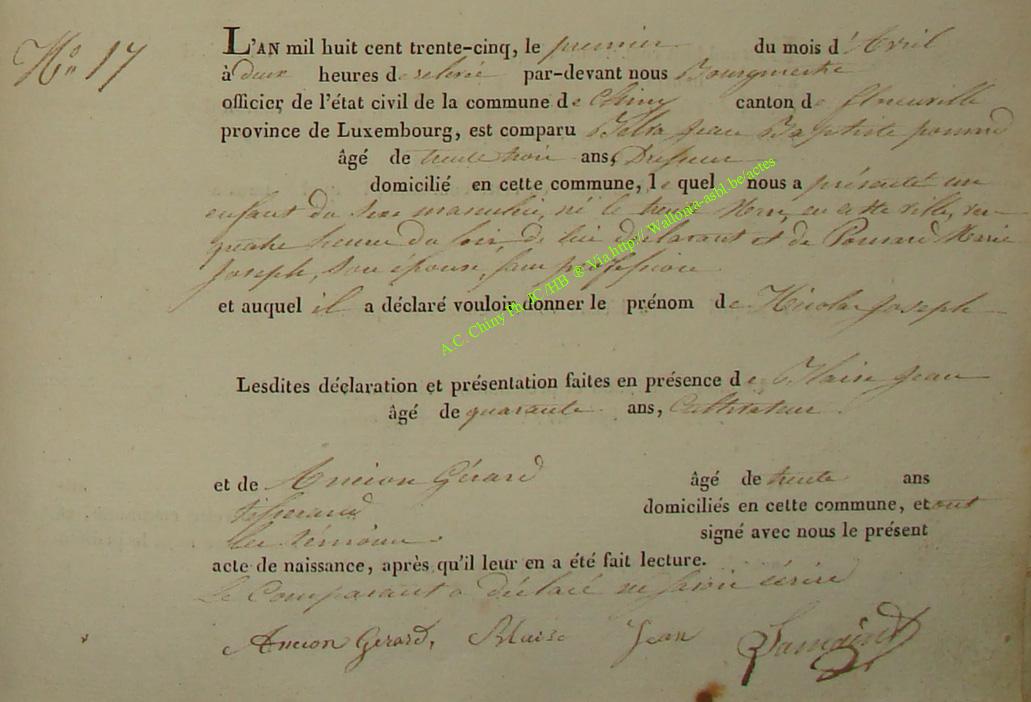 No 17
L'AN mil huit cent trente-cinq, le premier du mois d'Avril
à deux heures de relevée par-devant nous Bourgmestre
officier de l'état civil de la commune de Chiny canton de Florenville
province de Luxembourg, est comparu Jean Baptiste
âgé de trente trois ans,
domicilié en cette commune, lequel nous a présenté un
enfant du sexe masculin, né le Mars, en cette ville, vers
quatre heures du soir, de lui déclarant et de Ponsard Marie
Joseph, son épouse, sans profession
et auquel il a déclaré vouloir donner le prénom de Nicolas Joseph
Lesdites déclaration et présentation faites en présence de Blaise Jean
âgé de quarante ans, Cultivateur
et de Ancion Gérard âgé de trente ans
Tisserand domiciliés en cette commune, et ont
les témoins signé avec nous le présent
acte de naissance, après qu'il leur en a été fait lecture.
Le Comparant a déclaré ne savoir écrire
Ancion Gerard, Blaise Jean
A.C. Chiny Ph. JC/HB ® Via http://Wallonia-asbl.be/actes